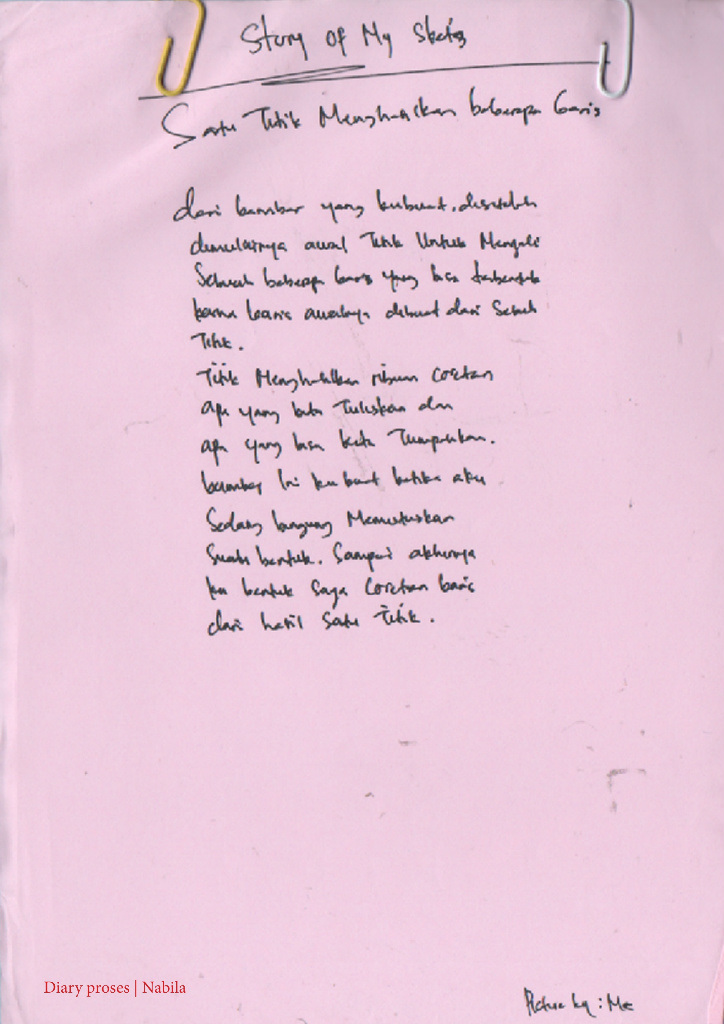 Story Of My Skets
Satu Titik Menghasilkan beberapa Garis
dari bambar yang kubuat, disetelah
dimulainya awal Titik Untuk Mengali
Sebuah beberapa Garis yang bisa terbentuk
karna Garis awalnya dibuat dari Sebuah
Titik.
Titik Menghasilkan ribuan coretan
apa yang kita Tuliskan dan
apa yang bisa kita Tumpahkan.
bambar Ini ku buat ketika aku
Sedang bingung Memutuskan
Suatu bentuk. Sampai akhirnya
ku bentuk saja Coretan baris
dari hasil satu Titik.
Diary proses | Nabila
Picture by : Me